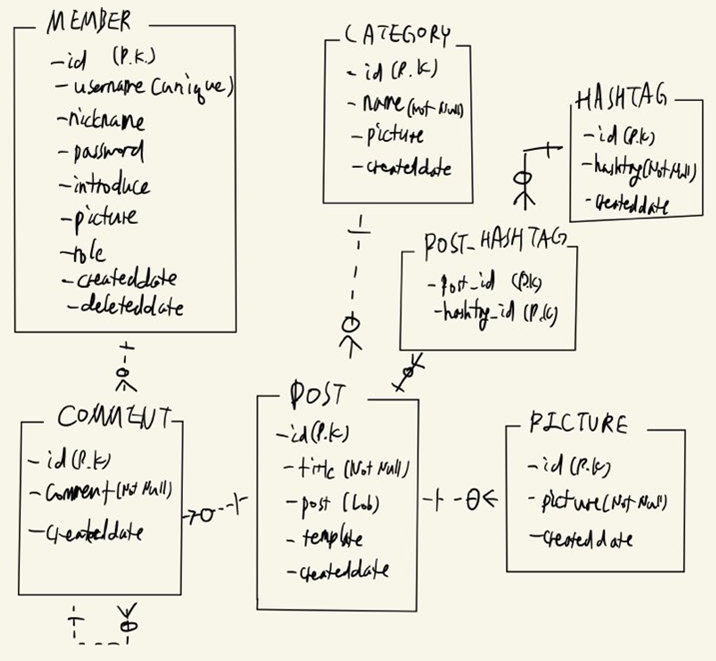 MEMBER
-id (P.K.)
-username (unique)
-nickname
-password
-introduce
-picture
-role
-createddate
-deleteddate
CATEGORY
-id (P.K)
-name (Not Null)
-picture
-createddate
HASHTAG
-id (P.K)
-hashtag (Not Null)
-createddate
POST_HASHTAG
-post_id (P.K)
-hashtag_id (P.K)
COMMENT
-id (P.K)
-comment (Not Null)
-createddate
POST
-id (P.K)
-title (Not Null)
-post (Lob)
-template
-createddate
PICTURE
-id (P.K)
-picture (Not Null)
-createddate